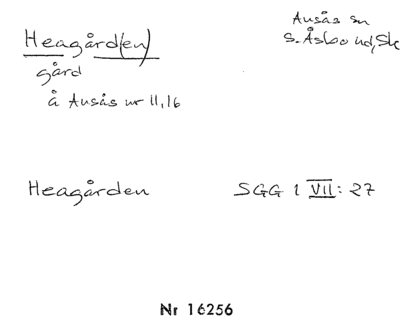 Heagård(en)
Ausås sn
S. Åsbo hd, Sk
gård
å Ausås nr 11, 16
Heagården
SGG 1 VII: 27
Nr 16256